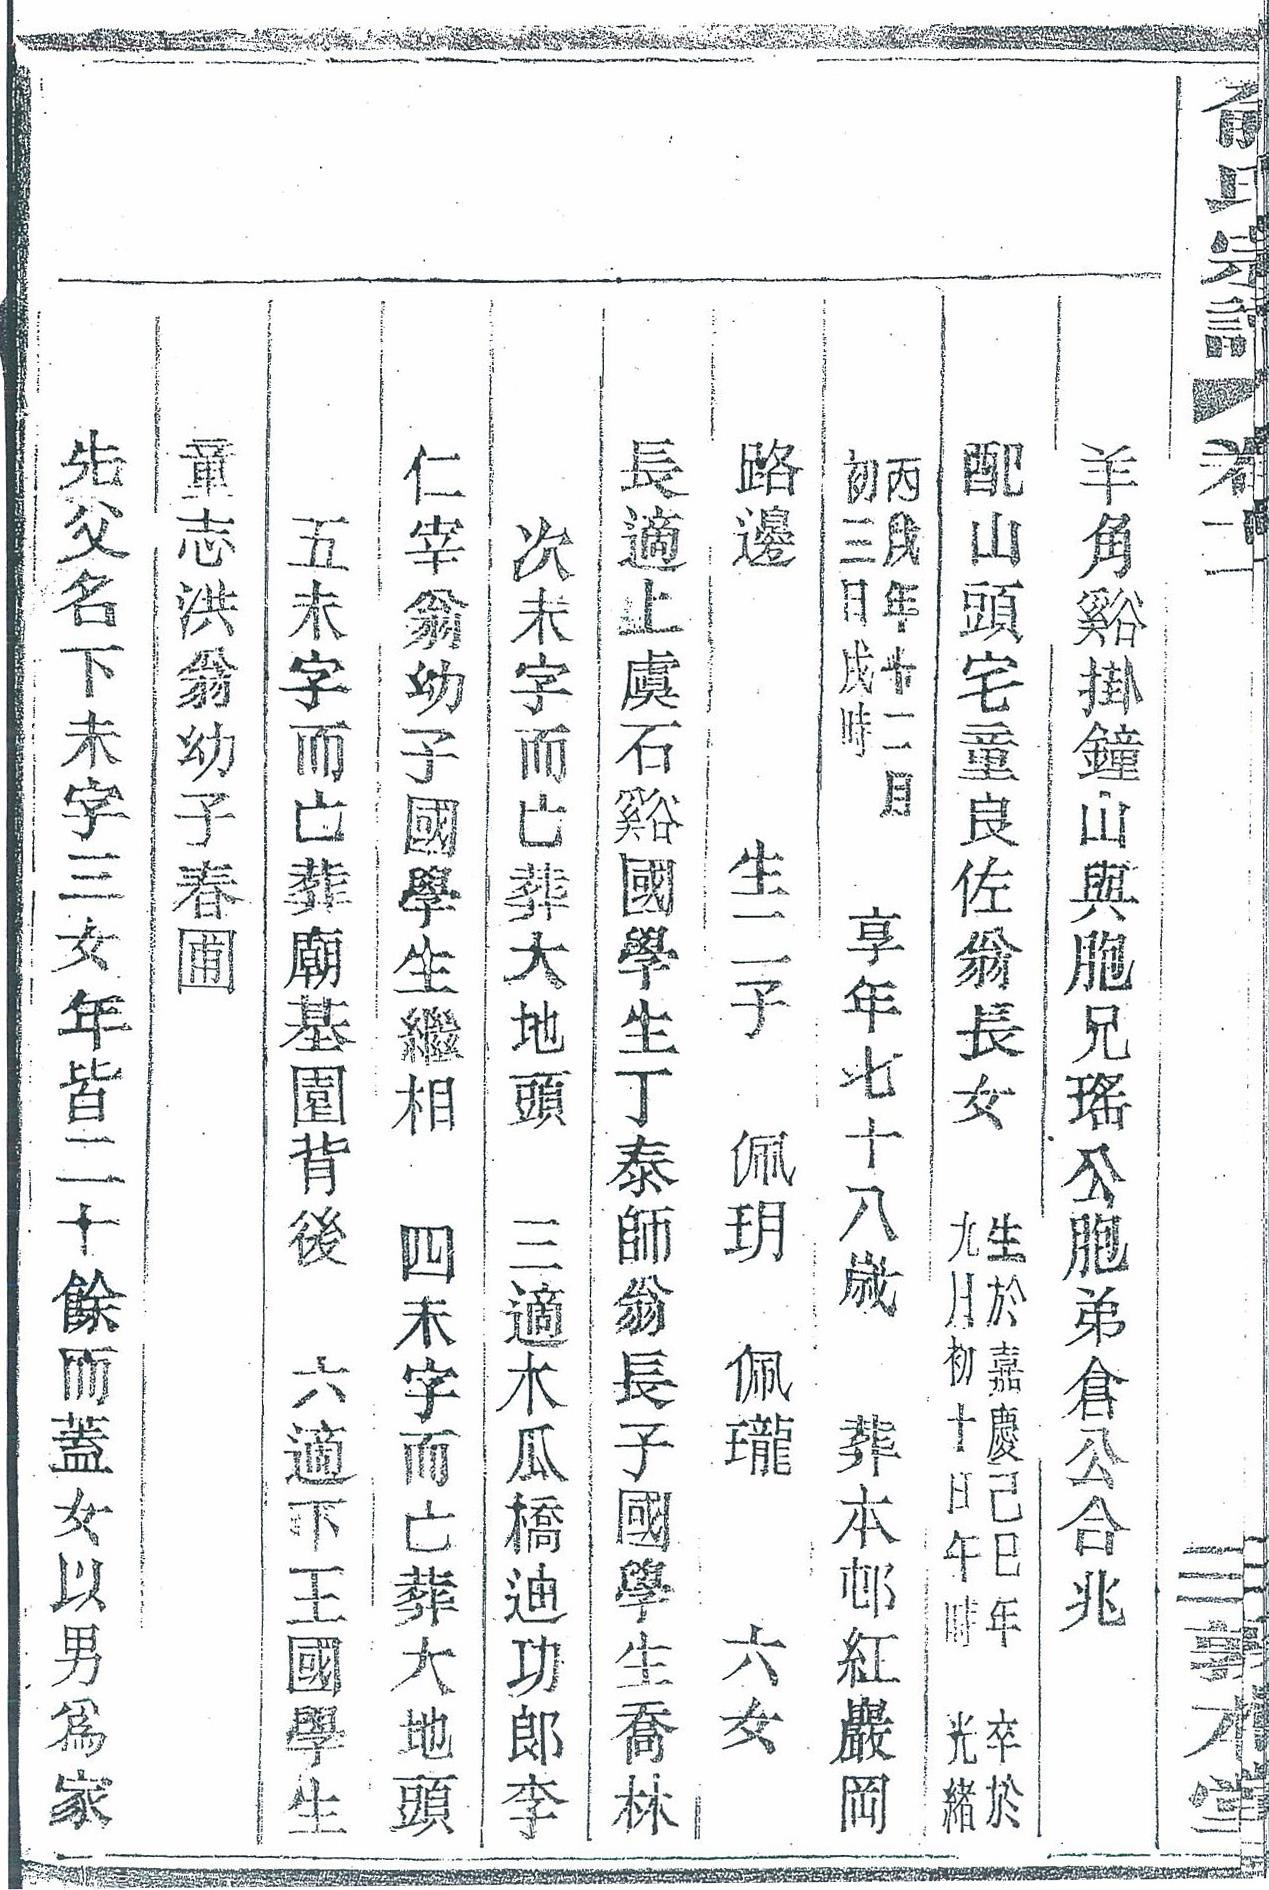 俞氏宗譜 卷二 三 敦本堂
羊角谿掛鐘山與胞兄瑤公胞弟倉公合兆
配山頭宅童良佐翁長女 生於嘉慶己巳年九月初十日午時 卒於光緒
丙戌年十二月初三日戌時 享年七十八歲 葬本邨紅巖岡
路邊 生二子 佩玥 佩瓏 六女
長適上虞石谿國學生丁泰師翁長子國學生喬林
次未字而亡葬大地頭 三適木瓜橋迪功郎李
仁宰翁幼子國學生繼相 四未字而亡葬大地頭
五未字而亡葬廟基園背後 六適下王國學生
童志洪翁幼子春圃
先父名下未字三女年皆二十餘而蓋女以男爲家